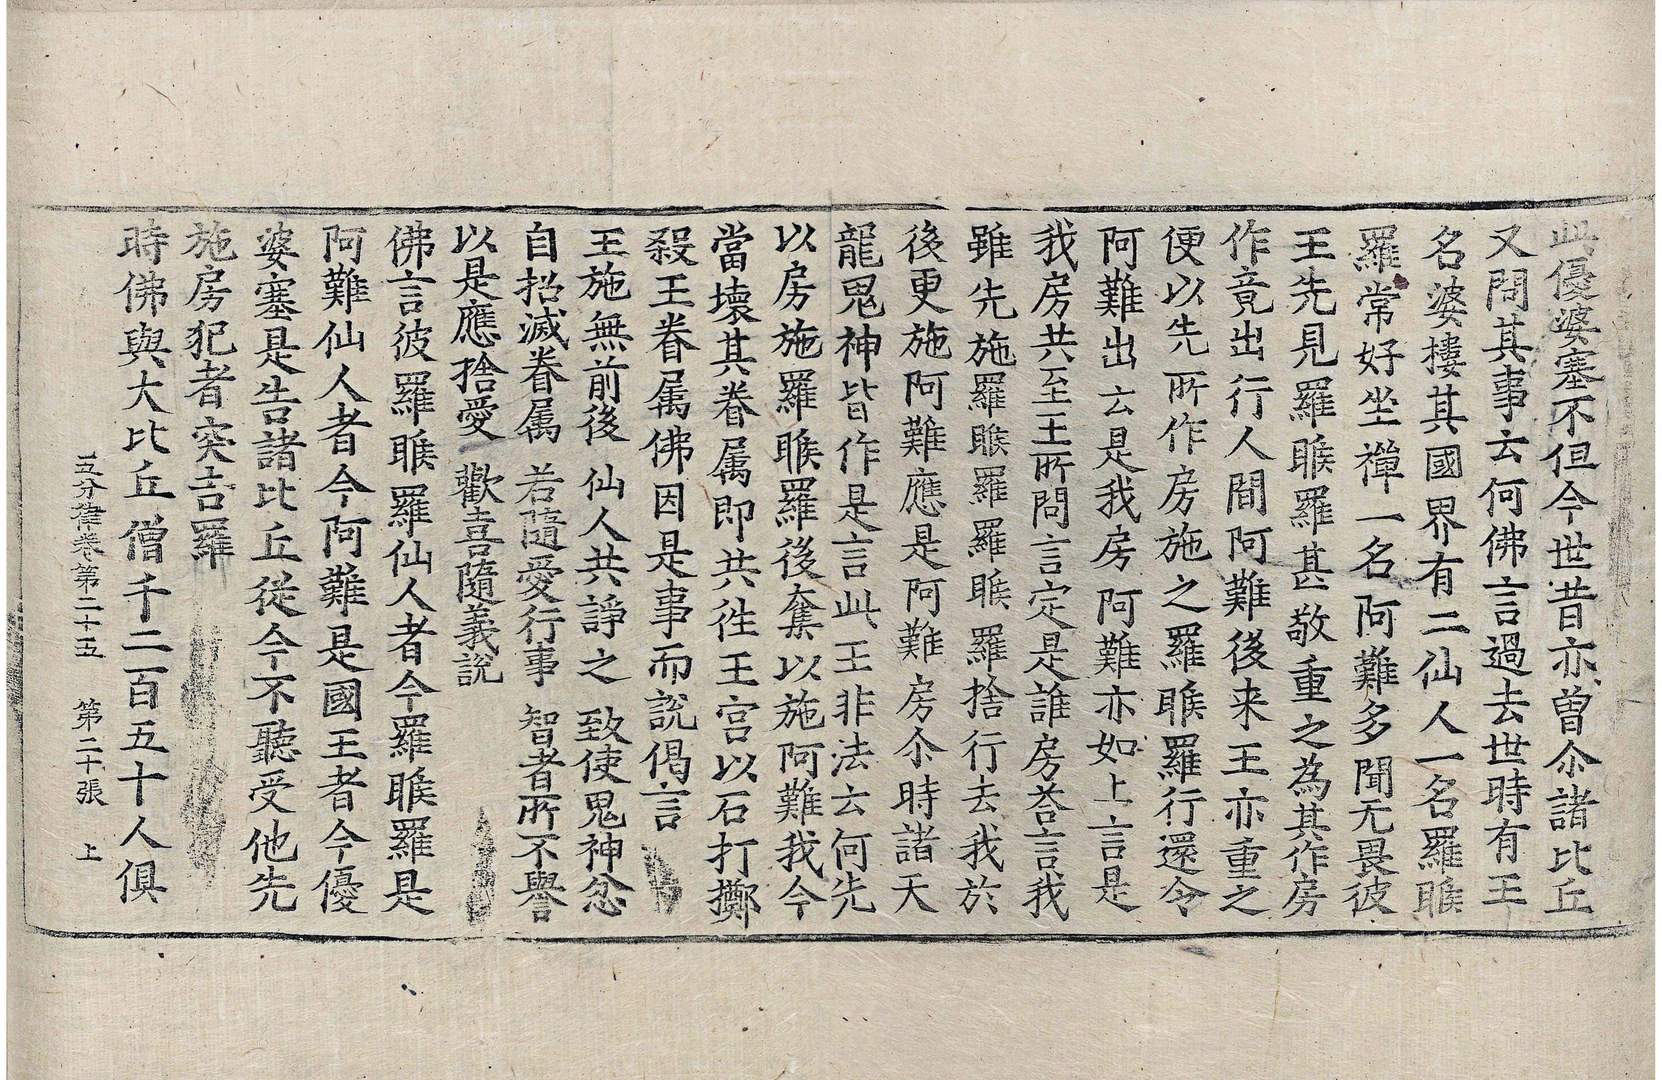 此優婆塞不但今世昔亦曾尒諸比丘
又問其事云何佛言過去世時有王
名婆樓其國界有二仙人一名羅睺
羅常好坐禪一名阿難多聞无畏彼
王先見羅睺羅甚敬重之為其作房
作竟出行人間阿難後来王亦重之
便以先所作房施之羅睺羅行還令
阿難出云是我房阿難亦如上言是
我房共至王所問言定是誰房荅言我
雖先施羅睺羅羅睺羅捨行去我於
後更施阿難應是阿難房尒時諸天
龍鬼神皆作是言此王非法云何先
以房施羅睺羅後奪以施阿難我今
當壞其眷属即共徃王宫以石打擲
殺王眷属佛因是事而說偈言
王施無前後 仙人共諍之 致使鬼神忿
自招滅眷属 若隨愛行事 智者所不譽
以是應捨愛 歡喜隨義說
佛言彼羅睺羅仙人者今羅睺羅是
阿難仙人者今阿難是國王者今優
婆塞是告諸比丘從今不聽受他先
施房犯者突吉羅
時佛與大比丘僧千二百五十人俱
五分律卷第二十五 第二十張 上